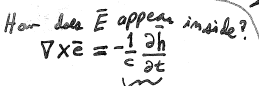 How does Ē appear inside?
∇ x ē = - 1/c ∂h̄/∂t